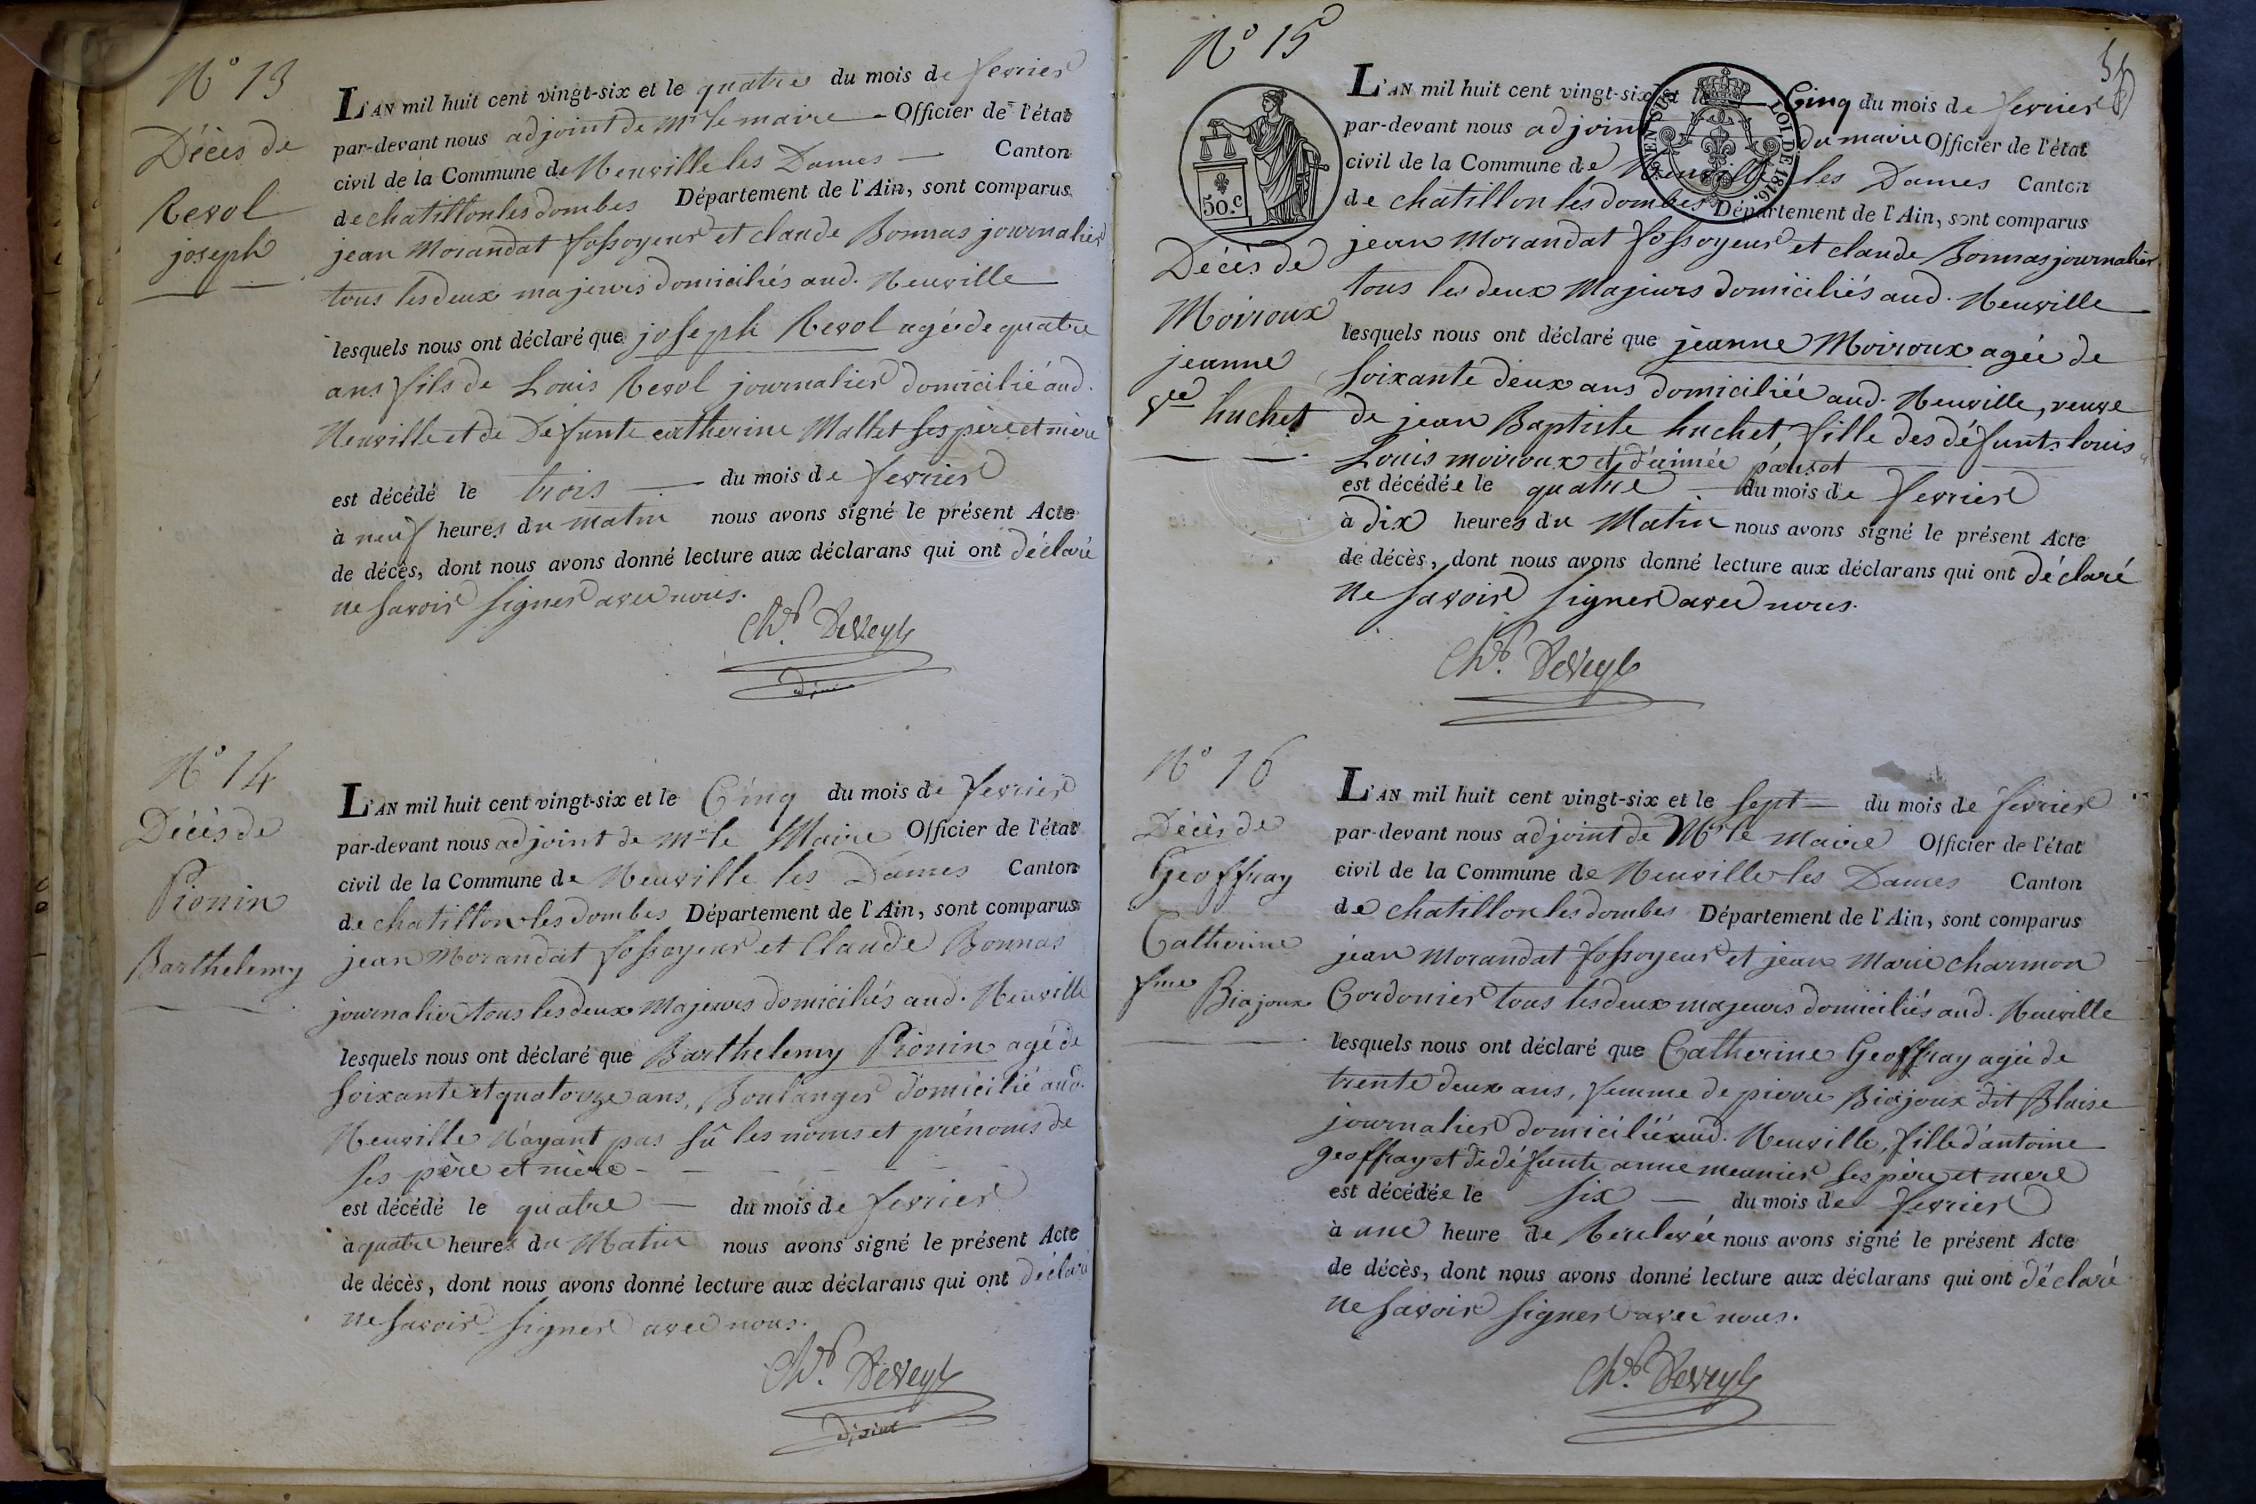 N° 13
Décès de
Revol
joseph
L'AN mil huit cent vingt-six et le quatre du mois de fevrier
par-devant nous adjoint de Mr le maire Officier de l'état
civil de la Commune de Neuville les Dames Canton
de chatillon les dombes Département de l'Ain, sont comparus
jean Morandat fossoyeur et claude Bonnas journalier
tous les deux majeurs domiciliés aud. Neuville
lesquels nous ont déclaré que joseph Revol agé de quatre
ans fils de Louis Revol journalier domicilié aud.
Neuville et de Défunte catherine Mallet ses père et mère
est décédé le trois du mois de fevrier
à neuf heures du matin nous avons signé le présent Acte
de décès, dont nous avons donné lecture aux déclarans qui ont déclaré
ne savoir signer avec nous.
Chr. DeVeyle
N° 14
Décès de
Pionin
Barthelemy
L'AN mil huit cent vingt-six et le Cinq du mois de fevrier
par-devant nous adjoint de Mr le Maire Officier de l'état
civil de la Commune de Neuville les Dames Canton
de chatillon les dombes Département de l'Ain, sont comparus
jean Morandat fossoyeur et Claude Bonnas
journalier tous les deux Majeurs domiciliés aud. Neuville
lesquels nous ont déclaré que Barthelemy Pionin agé de
soixante et quatorze ans, Boulanger domicilié aud.
Neuville N'ayant pas sû les noms et prénoms de
ses père et mère
est décédé le quatre du mois de fevrier
à quatre heures du Matin nous avons signé le présent Acte
de décès, dont nous avons donné lecture aux déclarans qui ont déclaré
ne savoir signer avec nous.
Chr. DeVeyle
N° 15
50.c
LOI DE 1816.
Décès de
Moiroux
jeanne
Vve huchet
L'AN mil huit cent vingt-six et le Cinq du mois de fevrier
par-devant nous adjoint du maire Officier de l'état
civil de la Commune de Neuville les Dames Canton
de chatillon les dombes Département de l'Ain, sont comparus
jean Morandat fossoyeur et claude Bonnas journalier
tous les deux Majeurs domiciliés aud. Neuville
lesquels nous ont déclaré que jeanne Moiroux agée de
soixante deux ans domiciliée aud. Neuville, veuve
de jean Baptiste huchet, fille des défunts louis
Louis moiroux et d'aimée pansot
est décédée le quatre du mois de fevrier
à dix heures du Matin nous avons signé le présent Acte
de décès, dont nous avons donné lecture aux déclarans qui ont déclaré
ne savoir signer avec nous.
Chr. DeVeyle
N° 16
Décès de
Geoffray
Catherine
fme Biajoux
L'AN mil huit cent vingt-six et le sept du mois de fevrier
par-devant nous adjoint de Mr le maire Officier de l'état
civil de la Commune de Neuville les Dames Canton
de chatillon les dombes Département de l'Ain, sont comparus
jean Morandat fossoyeur et jean Marie charmon
Cordonier tous les deux majeurs domiciliés aud. Neuville
lesquels nous ont déclaré que Catherine Geoffray agée de
trente deux ans, femme de pierre Biajoux dit Blaise
journalier domicilié aud. Neuville, fille d'antoine
geoffray et de défunte anne meunier ses père et mere
est décédée le six du mois de fevrier
à une heure de Rerelevée nous avons signé le présent Acte
de décès, dont nous avons donné lecture aux déclarans qui ont déclaré
ne savoir signer avec nous.
Chr. DeVeyle